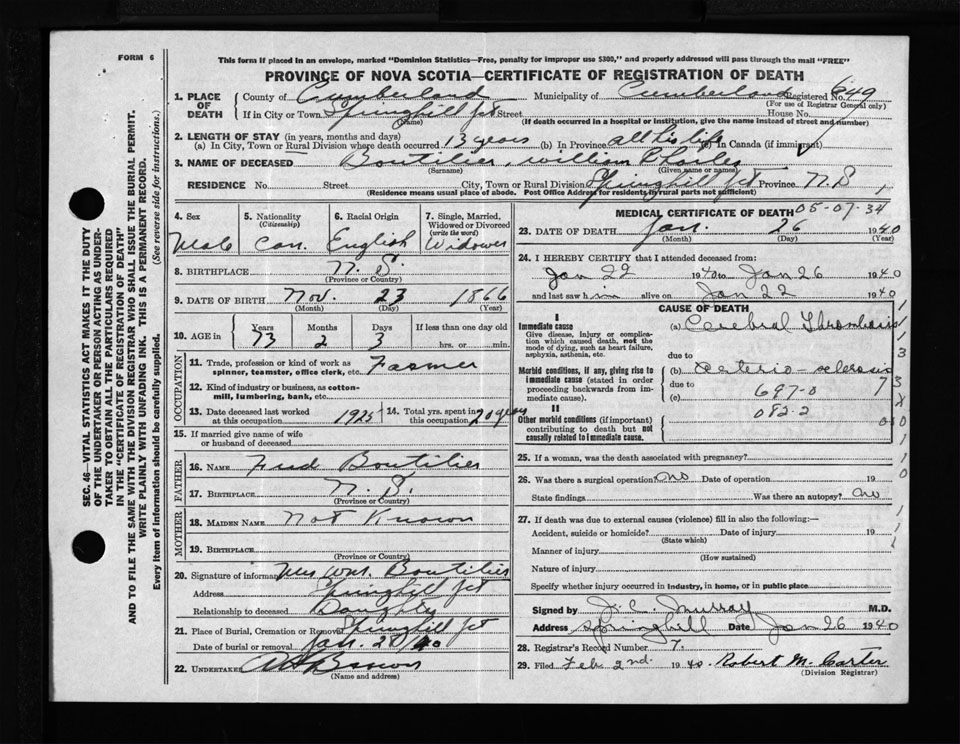 FORM 6
This form if placed in an envelope, marked "Dominion Statistics—Free, penalty for improper use $300," and properly addressed will pass through the mail "FREE"
PROVINCE OF NOVA SCOTIA—CERTIFICATE OF REGISTRATION OF DEATH
SEC. 46—VITAL STATISTICS ACT MAKES IT THE DUTY
OF THE UNDERTAKER OR PERSON ACTING AS UNDER-
TAKER TO OBTAIN ALL THE PARTICULARS REQUIRED
IN THE "CERTIFICATE OF REGISTRATION OF DEATH"
AND TO FILE THE SAME WITH THE DIVISION REGISTRAR WHO SHALL ISSUE THE BURIAL PERMIT.
WRITE PLAINLY WITH UNFADING INK. THIS IS A PERMANENT RECORD.
Every item of information should be carefully supplied. (See reverse side for instructions)
1. PLACE OF DEATH
County of Cumberland Municipality of Cumberland Registered No. 649
(For use of Registrar General only)
If in City or Town Springhill Jct Street House No.
(Name) (If death occurred in a hospital or institution, give the name instead of street and number)
2. LENGTH OF STAY (in years, months and days)
(a) In City, Town or Rural Division where death occurred 13 years (b) In Province all his life (c) In Canada (if immigrant)
3. NAME OF DECEASED Boutilier, William Charles
(Surname) (Given name or names)
RESIDENCE No. Street City, Town or Rural Division Springhill Jct Province N.S
(Residence means usual place of abode. Post Office Address for residents in rural parts not sufficient)
4. Sex Male
5. Nationality (Citizenship) Can.
6. Racial Origin English
7. Single, Married, Widowed or Divorced (write the word) Widower
8. BIRTHPLACE N.S.
(Province or Country)
9. DATE OF BIRTH Nov. 23 1866
(Month) (Day) (Year)
10. AGE in Years 73 Months 2 Days 3 If less than one day old hrs. or min.
OCCUPATION
11. Trade, profession or kind of work as spinner, teamster, office clerk, etc. Farmer
12. Kind of industry or business, as cotton-mill, lumbering, bank, etc.
13. Date deceased last worked at this occupation 1925
14. Total yrs. spent in this occupation 20 years
15. If married give name of wife or husband of deceased
FATHER
16. NAME Fred Boutilier
17. BIRTHPLACE N.S.
(Province or Country)
MOTHER
18. MAIDEN NAME Not Known
19. BIRTHPLACE
(Province or Country)
20. Signature of informant Mrs Wm. Boutilier
Address Springhill Jct
Relationship to deceased
21. Place of Burial, Cremation or Removal Springhill Jct
Date of burial or removal Jan. 28/40
22. UNDERTAKER Brown
(Name and address)
MEDICAL CERTIFICATE OF DEATH 05-07-34
23. DATE OF DEATH Jan. 26 1940
(Month) (Day) (Year)
24. I HEREBY CERTIFY that I attended deceased from:
Jan 22 1940 to Jan 26 1940
and last saw him alive on Jan 22 1940
CAUSE OF DEATH
I
Immediate cause
Give disease, injury or complication which caused death, not the mode of dying, such as heart failure, asphyxia, asthenia, etc.
(a) Cerebral Thrombosis
due to
Morbid conditions, if any, giving rise to immediate cause (stated in order proceeding backwards from immediate cause).
(b) Arterio-sclerosis
due to
(c) 697-0
082-2
II
Other morbid conditions (if important) contributing to death but not causally related to immediate cause.
25. If a woman, was the death associated with pregnancy?
26. Was there a surgical operation? no Date of operation 19
State findings Was there an autopsy? no
27. If death was due to external causes (violence) fill in also the following:—
Accident, suicide or homicide? Date of injury 19
(State which)
Manner of injury
(How sustained)
Nature of injury
Specify whether injury occurred in industry, in home, or in public place
Signed by J. C. Murray M.D.
Address Springhill Date Jan 26 1940
28. Registrar's Record Number 7.
29. Filed Feb 2nd. 1940. Robert M. Carter
(Division Registrar)